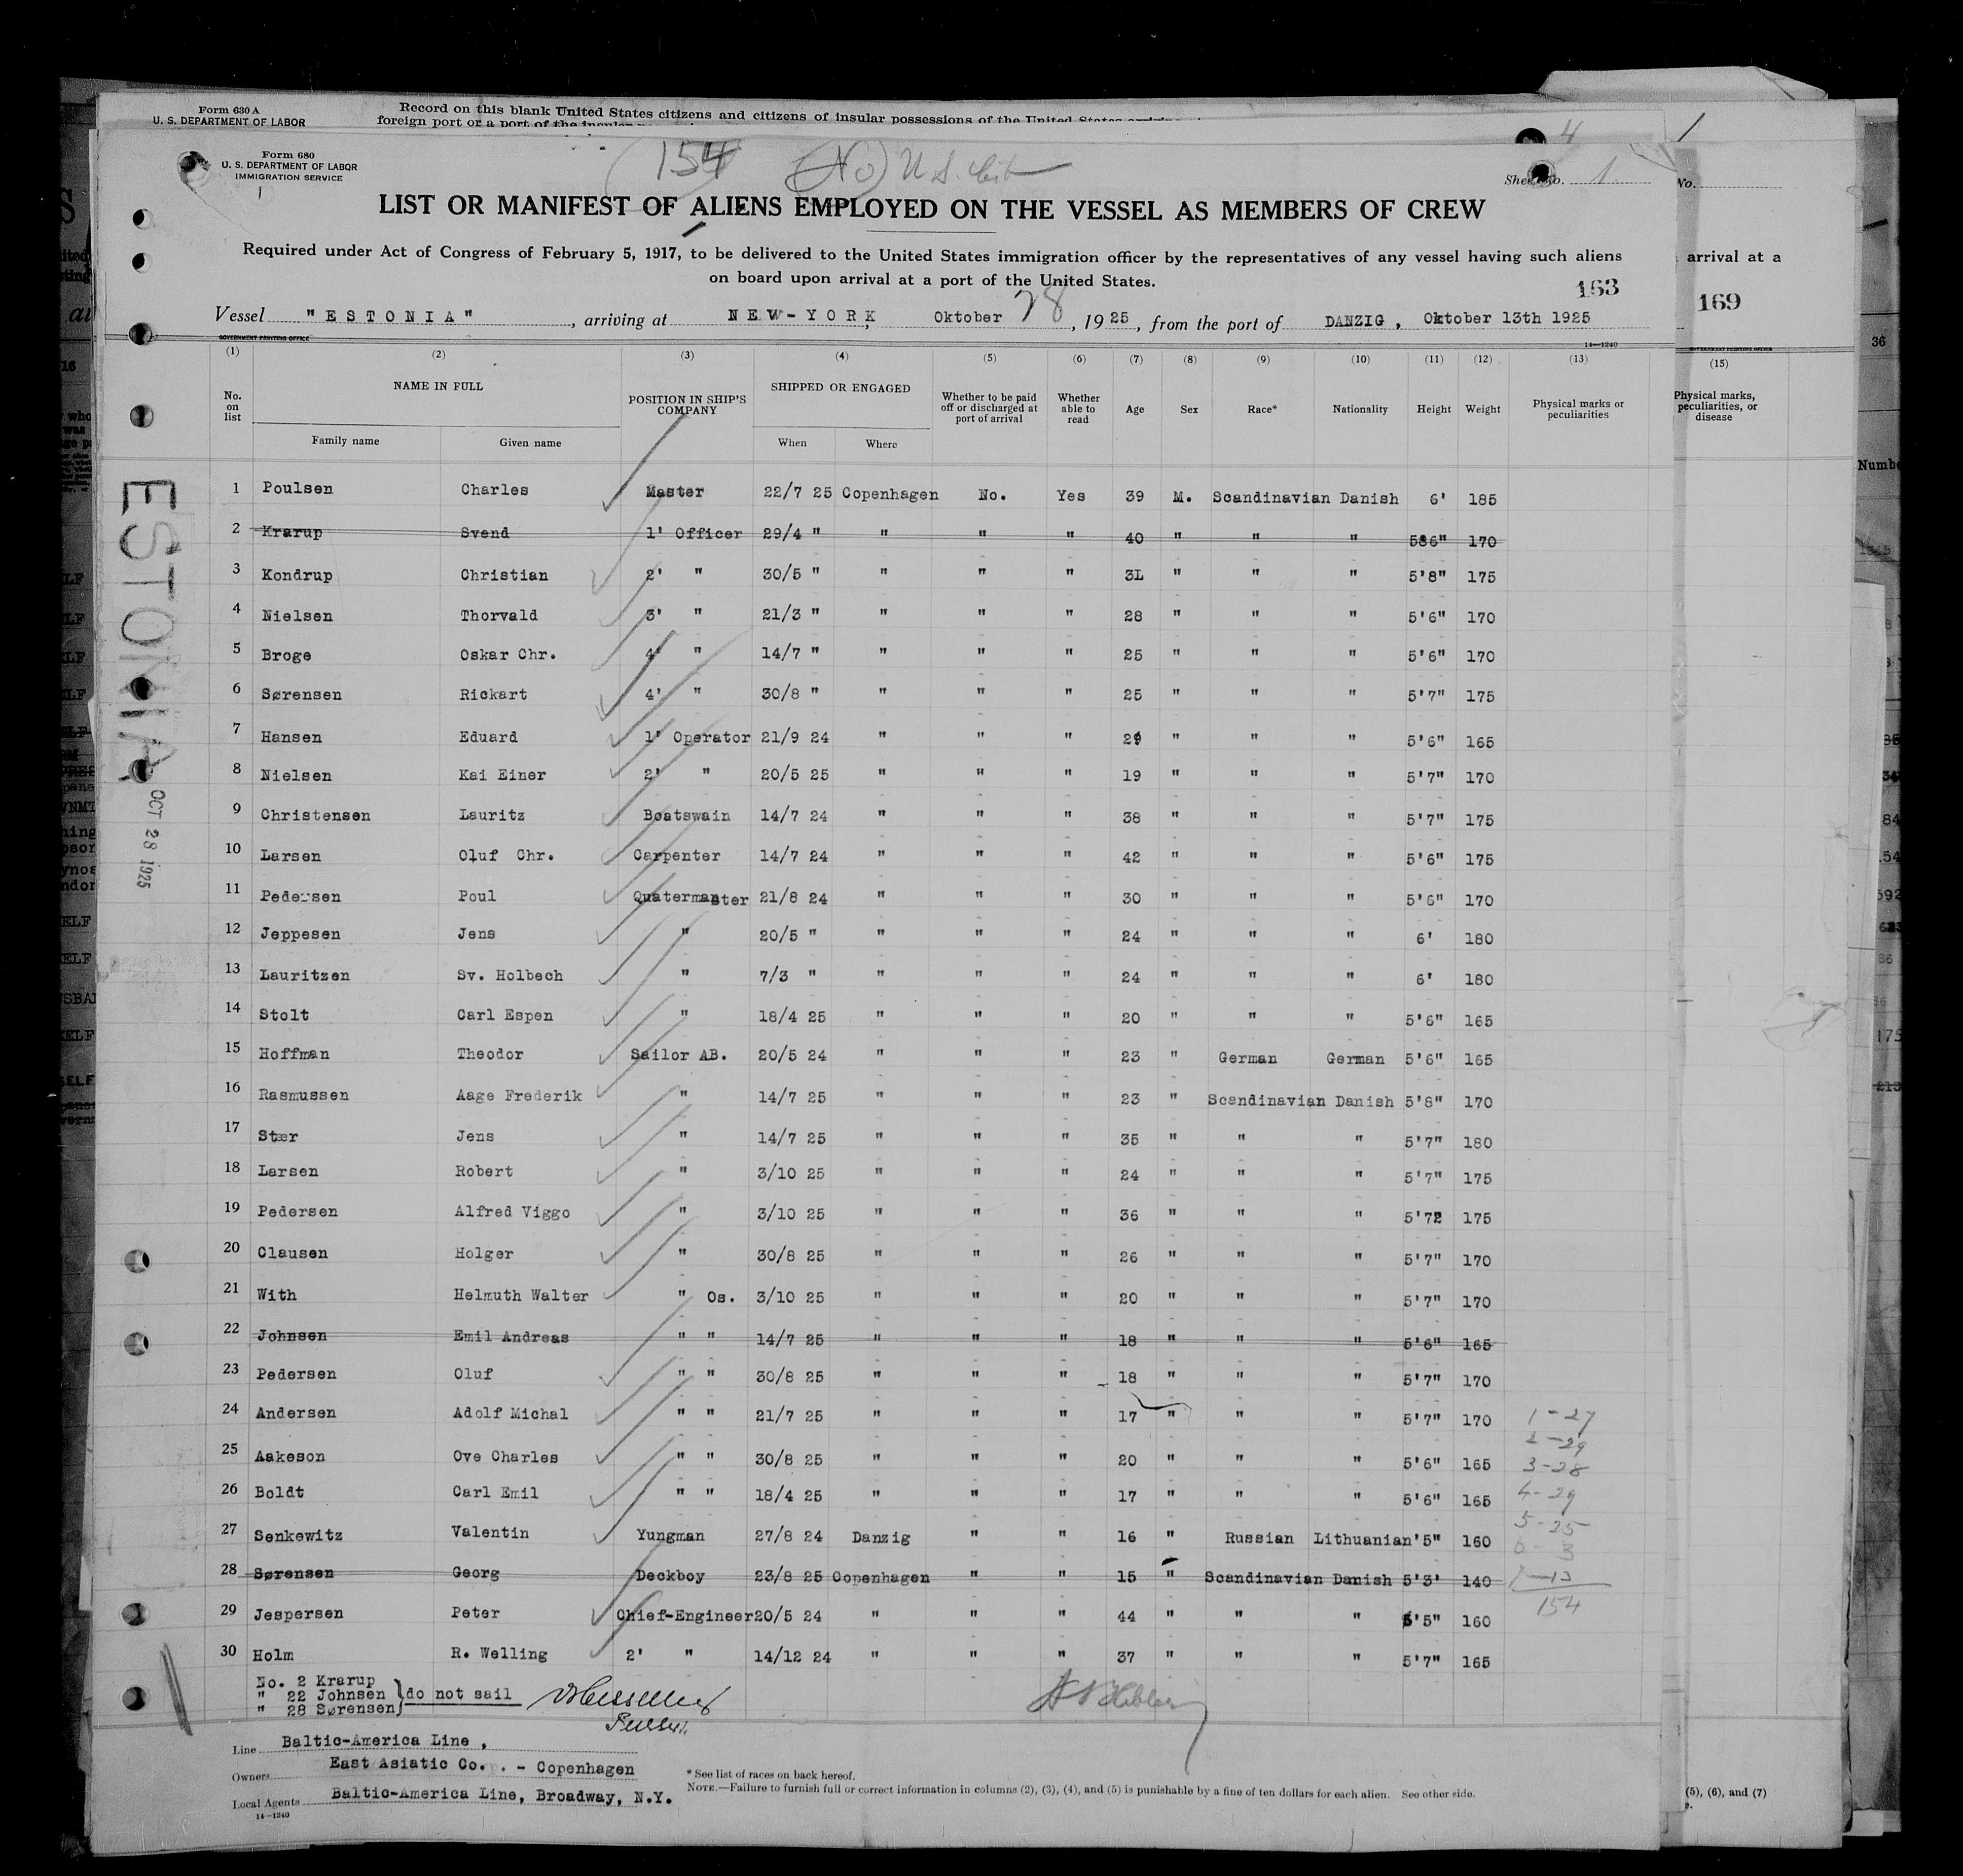 Form 630 A
U. S. DEPARTMENT OF LABOR
Record on this blank United States citizens and citizens of insular possessions of the United States
foreign port or a port of the insular
Form 680
U. S. DEPARTMENT OF LABOR
IMMIGRATION SERVICE
1
154
(No) U.S. Cit
4
1
Sheet No. 1.
No.
LIST OR MANIFEST OF ALIENS EMPLOYED ON THE VESSEL AS MEMBERS OF CREW
Required under Act of Congress of February 5, 1917, to be delivered to the United States immigration officer by the representatives of any vessel having such aliens
on board upon arrival at a port of the United States.
arrival at a
163
169
Vessel "ESTONIA", arriving at NEW-YORK, Oktober 28, 1925, from the port of DANZIG, Oktober 13th 1925
GOVERNMENT PRINTING OFFICE
14—1240
(1) (2) (3) (4) (5) (6) (7) (8) (9) (10) (11) (12) (13) (15)
No. on list
NAME IN FULL
Family name
Given name
POSITION IN SHIP'S COMPANY
SHIPPED OR ENGAGED
When
Where
Whether to be paid off or discharged at port of arrival
Whether able to read
Age
Sex
Race*
Nationality
Height
Weight
Physical marks or peculiarities
Physical marks, peculiarities, or disease
ESTONIA
OCT 28 1925
1 Poulsen Charles Master 22/7 25 Copenhagen No. Yes 39 M. Scandinavian Danish 6' 185
2 Krarup Svend 1' Officer 29/4 " " " " 40 " " " 586" 170
3 Kondrup Christian 2' " 30/5 " " " " 3L " " " 5'8" 175
4 Nielsen Thorvald 3' " 21/3 " " " " 28 " " " 5'6" 170
5 Broge Oskar Chr. 4' " 14/7 " " " " 25 " " " 5'6" 170
6 Sørensen Rickart 4' " 30/8 " " " " 25 " " " 5'7" 175
7 Hansen Eduard 1' Operator 21/9 24 " " " " " " 5'6" 165
8 Nielsen Kai Einer 2' " 20/5 25 " " " 19 " " " 5'7" 170
9 Christensen Lauritz Boatswain 14/7 24 " " " 38 " " " 5'7" 175
10 Larsen Oluf Chr. Carpenter 14/7 24 " " " 42 " " " 5'6" 175
11 Pedersen Poul Quatermanster 21/8 24 " " " 30 " " " 5'6" 170
12 Jeppesen Jens " 20/5 " " " " 24 " " " 6' 180
13 Lauritzen Sv. Holbech " 7/3 " " " " 24 " " " 6' 180
14 Stolt Carl Espen " 18/4 25 " " " 20 " " " 5'6" 165
15 Hoffman Theodor Sailor AB. 20/5 24 " " " 23 " German German 5'6" 165
16 Rasmussen Aage Frederik " 14/7 25 " " " 23 " Scandinavian Danish 5'8" 170
17 Stær Jens " 14/7 25 " " " 35 " " " 5'7" 180
18 Larsen Robert " 3/10 25 " " " 24 " " " 5'7" 175
19 Pedersen Alfred Viggo " 3/10 25 " " " 36 " " " 5'72 175
20 Clausen Holger " 30/8 25 " " " 26 " " " 5'7" 170
21 With Helmuth Walter " Os. 3/10 25 " " " 20 " " " 5'7" 170
22 Johnsen Emil Andreas " " 14/7 25 " " " 18 " " " 5'6" 165
23 Pedersen Oluf " " 30/8 25 " " " 18 " " " 5'7" 170
24 Andersen Adolf Michal " " 21/7 25 " " " 17 " " " 5'7" 170
25 Aakeson Ove Charles " " 30/8 25 " " " 20 " " " 5'6" 165
26 Boldt Carl Emil " " 18/4 25 " " " 17 " " " 5'6" 165
27 Senkewitz Valentin Yungman 27/8 24 Danzig " " 16 " Russian Lithuanian '5" 160
28 Sørensen Georg Deckboy 23/8 25 Copenhagen " " 15 " Scandinavian Danish 5'3' 140
29 Jespersen Peter Chief-Engineer 20/5 24 " " " 44 " " " 5'5" 160
30 Holm R. Welling 2' " 14/12 24 " " " 37 " " " 5'7" 165
1-27
2-29
3-28
4-29
5-25
6-3
7-13
154
No. 2 Krarup
" 22 Johnsen } do not sail
" 28 Sørensen
Line Baltic-America Line ,
Owners East Asiatic Co. . - Copenhagen
Local Agents Baltic-America Line, Broadway, N.Y.
14—1240
* See list of races on back hereof.
NOTE.—Failure to furnish full or correct information in columns (2), (3), (4), and (5) is punishable by a fine of ten dollars for each alien. See other side.
(5), (6), and (7)